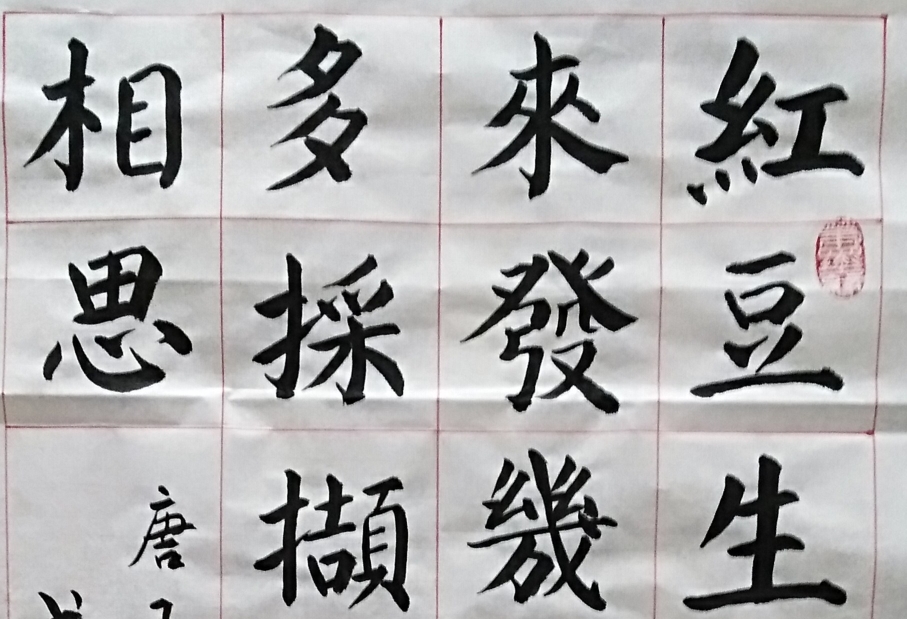 紅豆生
來發幾
多採擷
相思
唐